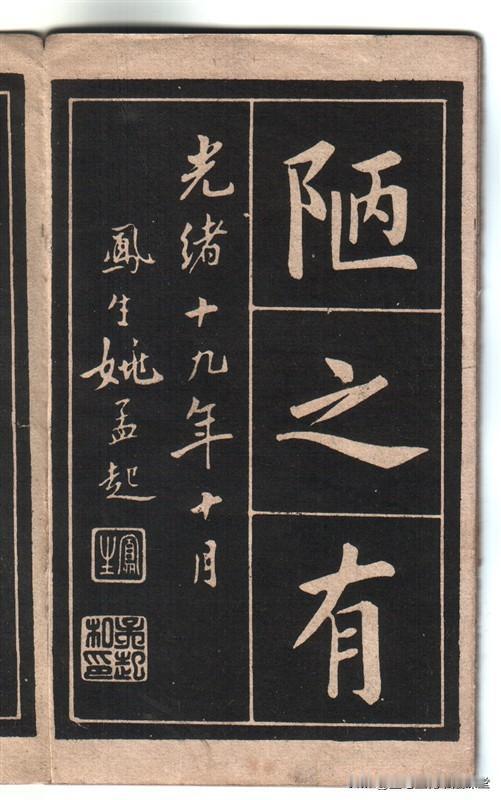 陋之有
光緒十九年十月
鳳生姚孟起
鳳生
孟起私印